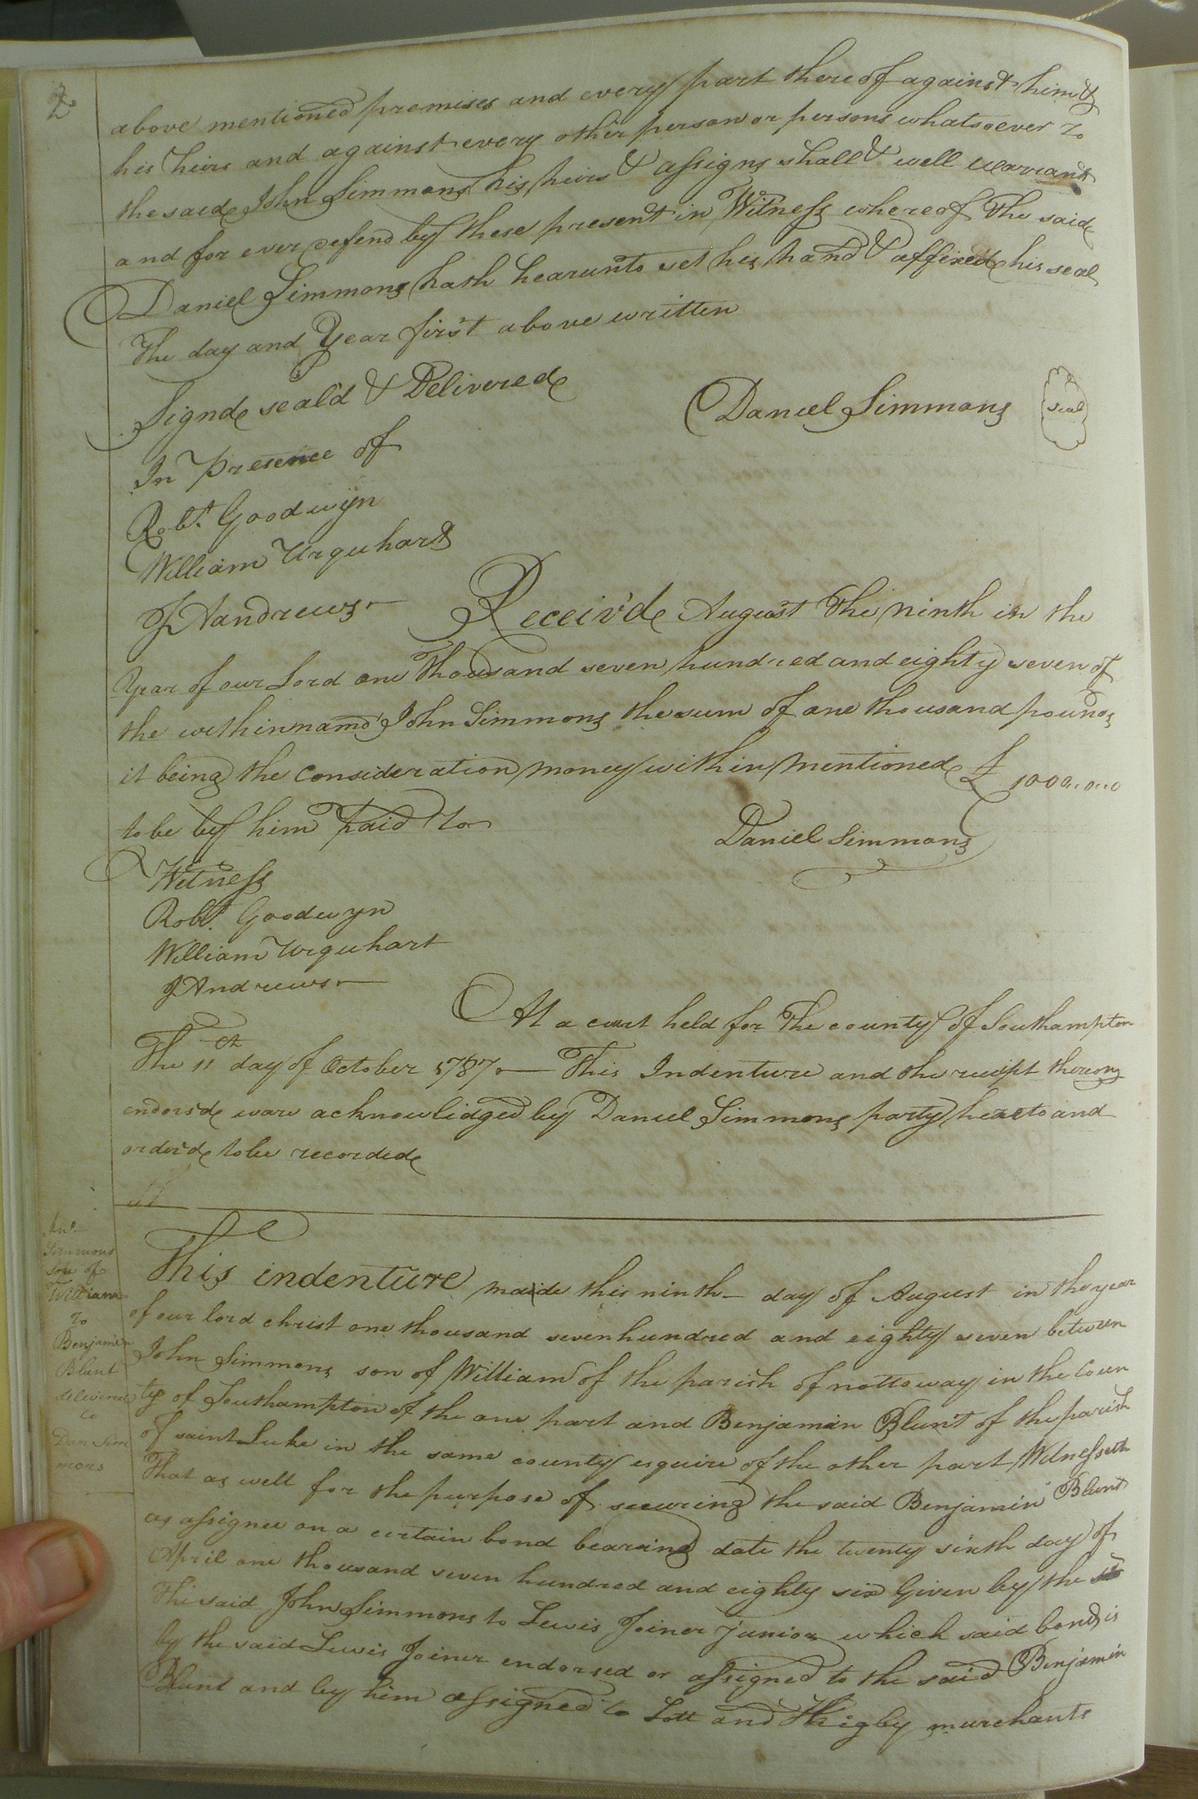 2
above mentioned premises and every part thereof against him &
his heirs and against every other person or persons whatsoever to
the saide John Simmons his heirs & assigns shall & well warrant
and for ever defend by these present in Witness whereof the saide
Daniel Simmons hath hearunto set his hand & affixed his seal
The day and Year first above written
Signde seal'd & Delivered
Daniel Simmons
Seal
In presence of
Robt. Goodwyn
William Urquhart
J Andrews
Receiv'de August the ninth in the
Year of our Lord one Thousand seven hundred and eighty seven of
the within namd John Simmons the sum of one thousand pounds
it being the consideration money within mentioned £ 1000..0..0
to be by him paid to
Daniel Simmons
Witness
Robt. Goodwyn
William Urquhart
J Andrews
At a court held for the county of Southampton
The 11th day of October 1787 This Indenture and the receipt thereon
endorsde ware acknowlidged by Daniel Simmons party hereto and
orderd to be recorded
This indenture made this ninth day of August in the year
of our lord christ one thousand seven hundred and eighty seven between
John Simmons son of William of the parish of nottoway in the Coun
ty of Southampton of the one part and Benjamin Blunt of the parish
of saint Luke in the same county esquire of the other part Witnesseth
That as well for the purpose of securing the said Benjamin Blunt
as assignee on a certain bond bearing date the twenty sixth day of
April one thousand seven hundred and eighty six Given by the
the said John Simmons to Lewis Joiner junior which said bond is
by the said Lewis Joiner endorsed or assigned to the said Benjamin
Blunt and by him assigned to Lott and Higby murchants
Jno.
Simmons
son of
William
To
Benjamin
Blunt
delivered
to
Dan Sim
mons